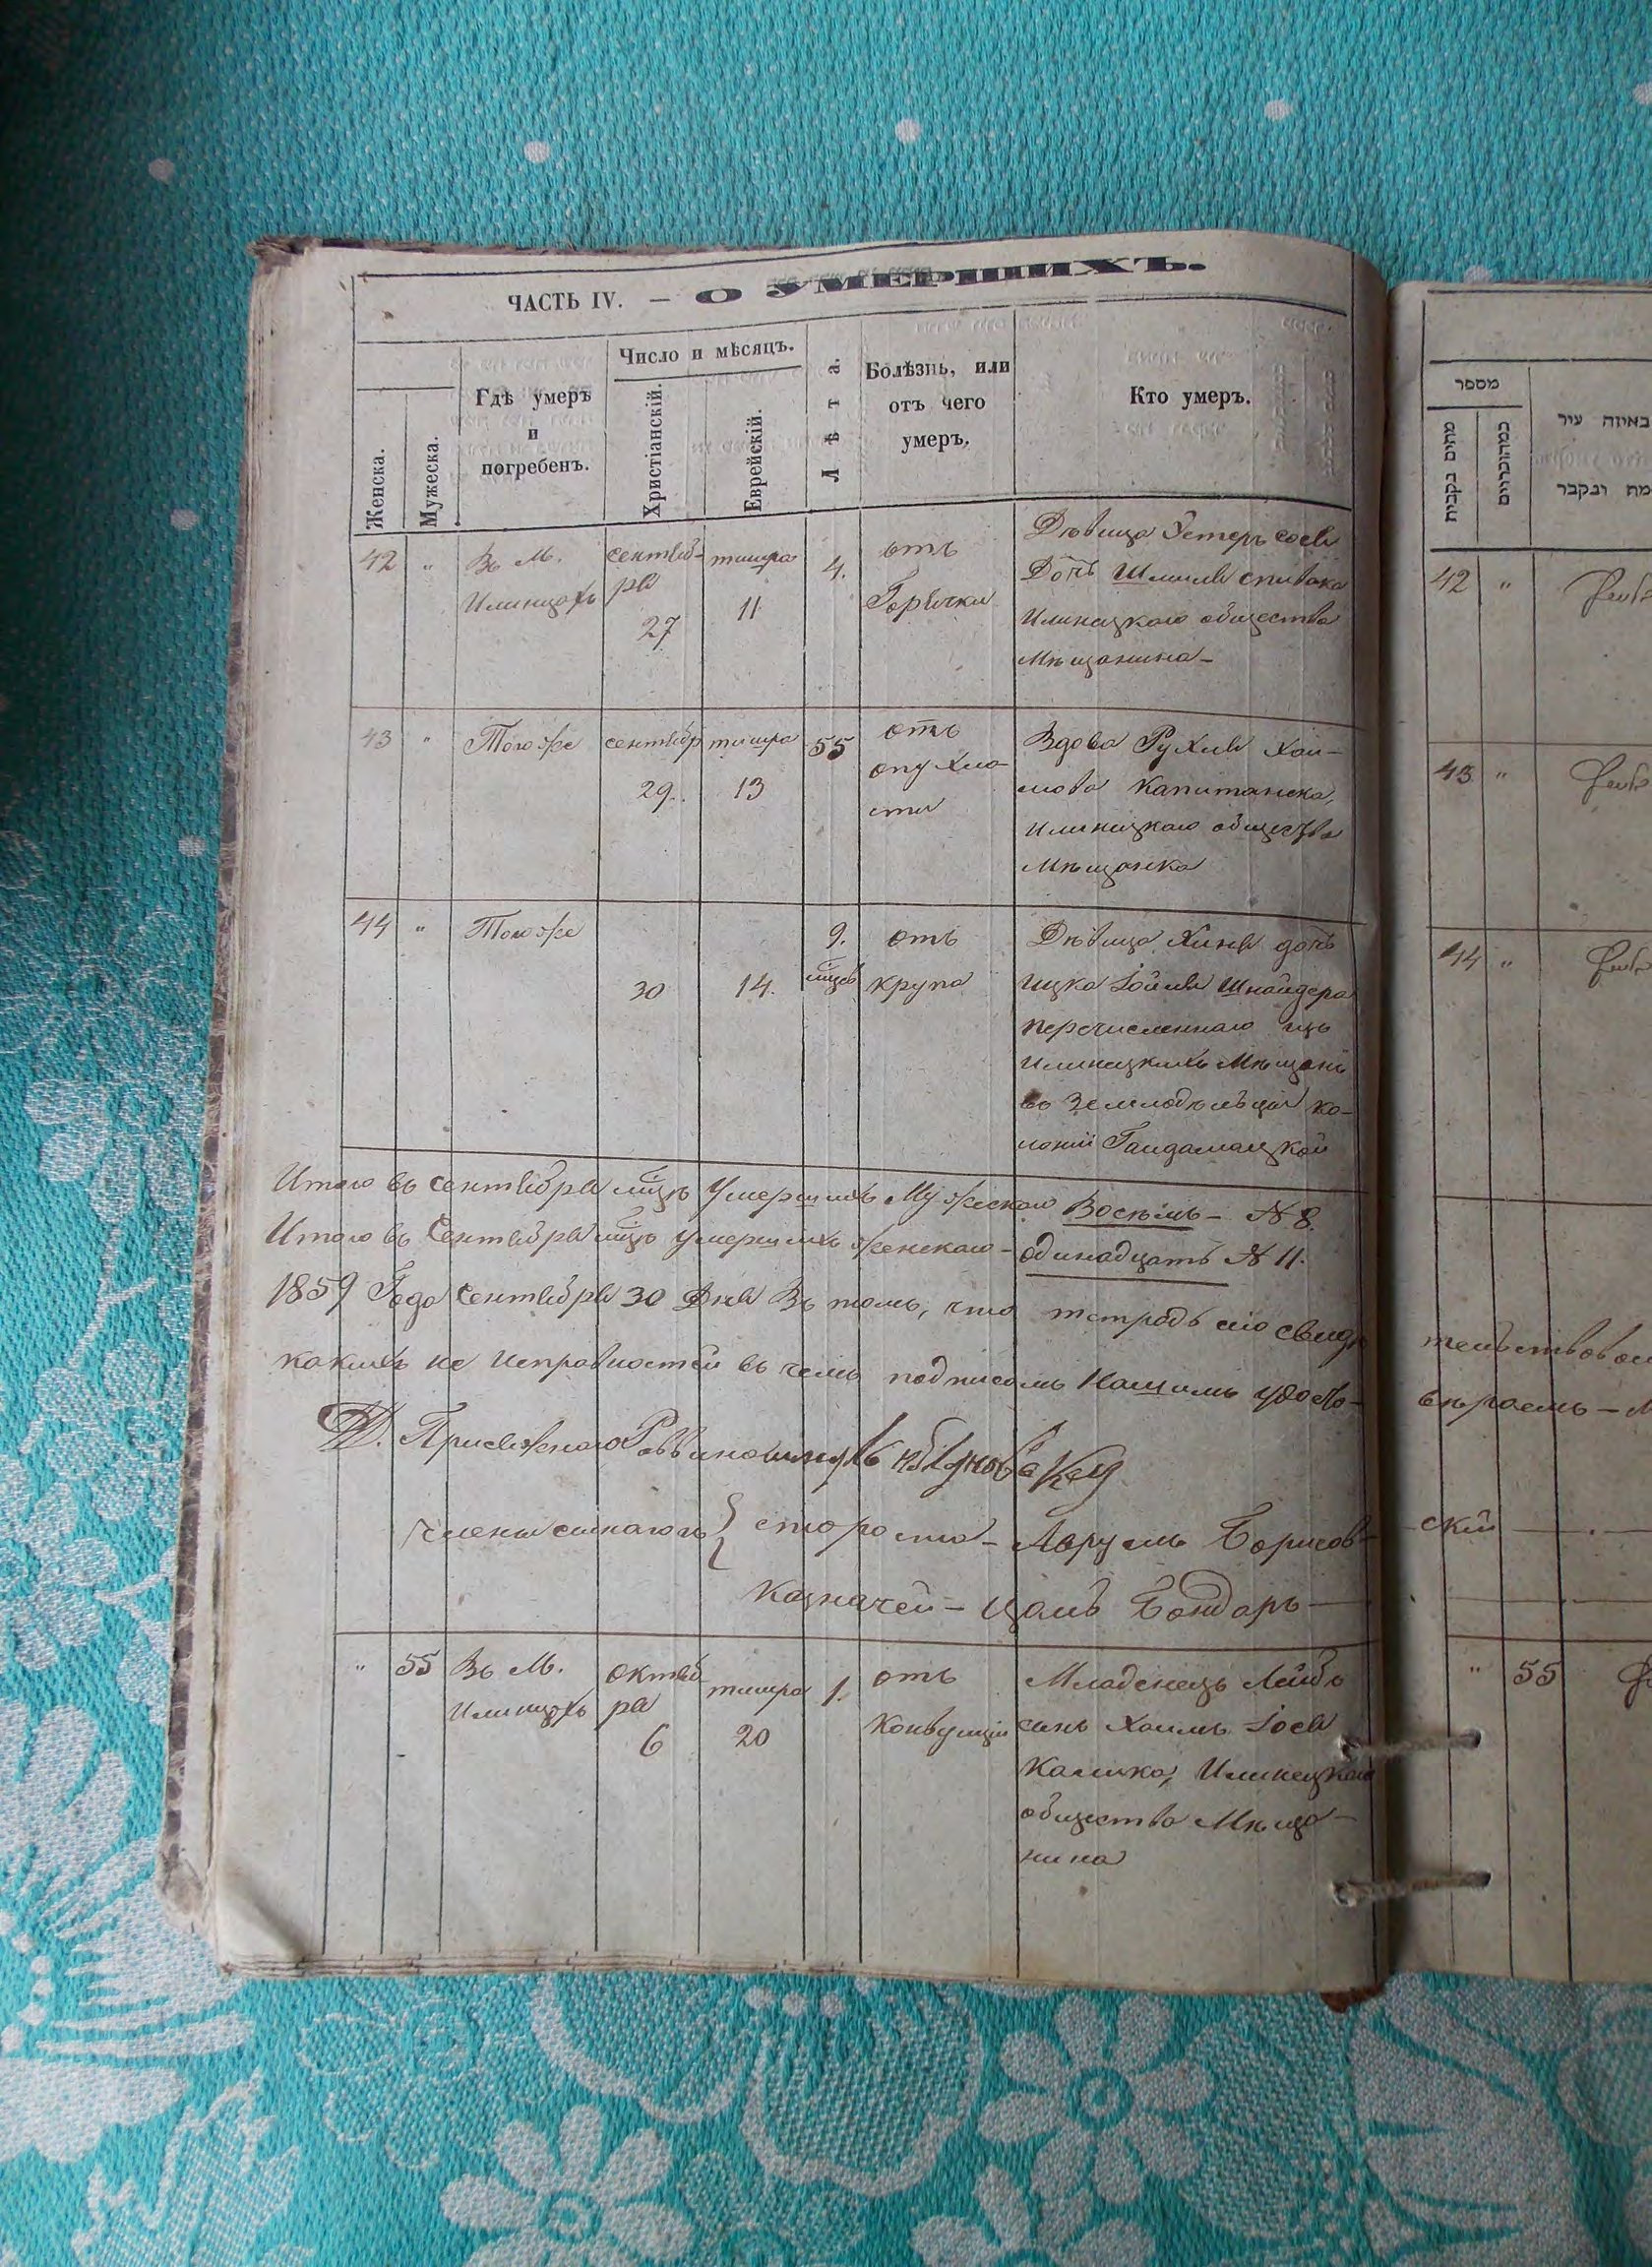 ЧАСТЬ IV. — О УМЕРШИХЪ.
Женска.
Мужеска.
Гдѣ умеръ
и
погребенъ.
Число и мѣсяцъ.
Христіанскій.
Еврейскій.
Лѣта.
Болѣзнь, или
отъ чего
умеръ.
Кто умеръ.
42 " Въ М.
Илинцахъ
сентяб-
ря
27
тишра
11
4.
отъ
Горячки
Дѣвица Эстеръ
Дочь Шмиля спивака
Илинецкаго общества
Мѣщанина-
43 " Тогоже
сентябр
29.
тишра
13
55
отъ
опухло-
сти
Вдова Рухля Хаи-
мова Капитанска,
Илинецкаго общества
Мѣщанка
44 " Тогоже
30
14.
9.
мцев
отъ
крупа
Дѣвица Хиня дочь
ицка Іойля Шнайдера
перечисленнаго изъ
Илинецкихъ Мѣщанъ
ко-
лоніи Гайдамацкой
Итого въ сентября мцѣ Умершихъ Мужескаго Восѣмь - N 8.
Итого въ Сентября мцѣ умершихъ женскаго - одинадцать N 11.
1859 Года Сентября 30 Дня Въ томъ, что тетрадь сію свидѣ
какихъ не исправностей въ чемъ подписомъ Нашимъ удосто-
Д. Присяжнаго Раввина
члены синагоги } староста - Борисов-
казначей - Бондарь
" 55 Въ М.
Илинцахъ
октяб
ря
6
тишра
20
1.
отъ
Конвулціи
Младенецъ Лейбъ
сынъ Хаимъ Іося
Калика, Илинецкаго
общества Мѣща-
нина
מספר
42 "
43 "
44 "
тельствовал
вѣряемъ -
ский
" 55